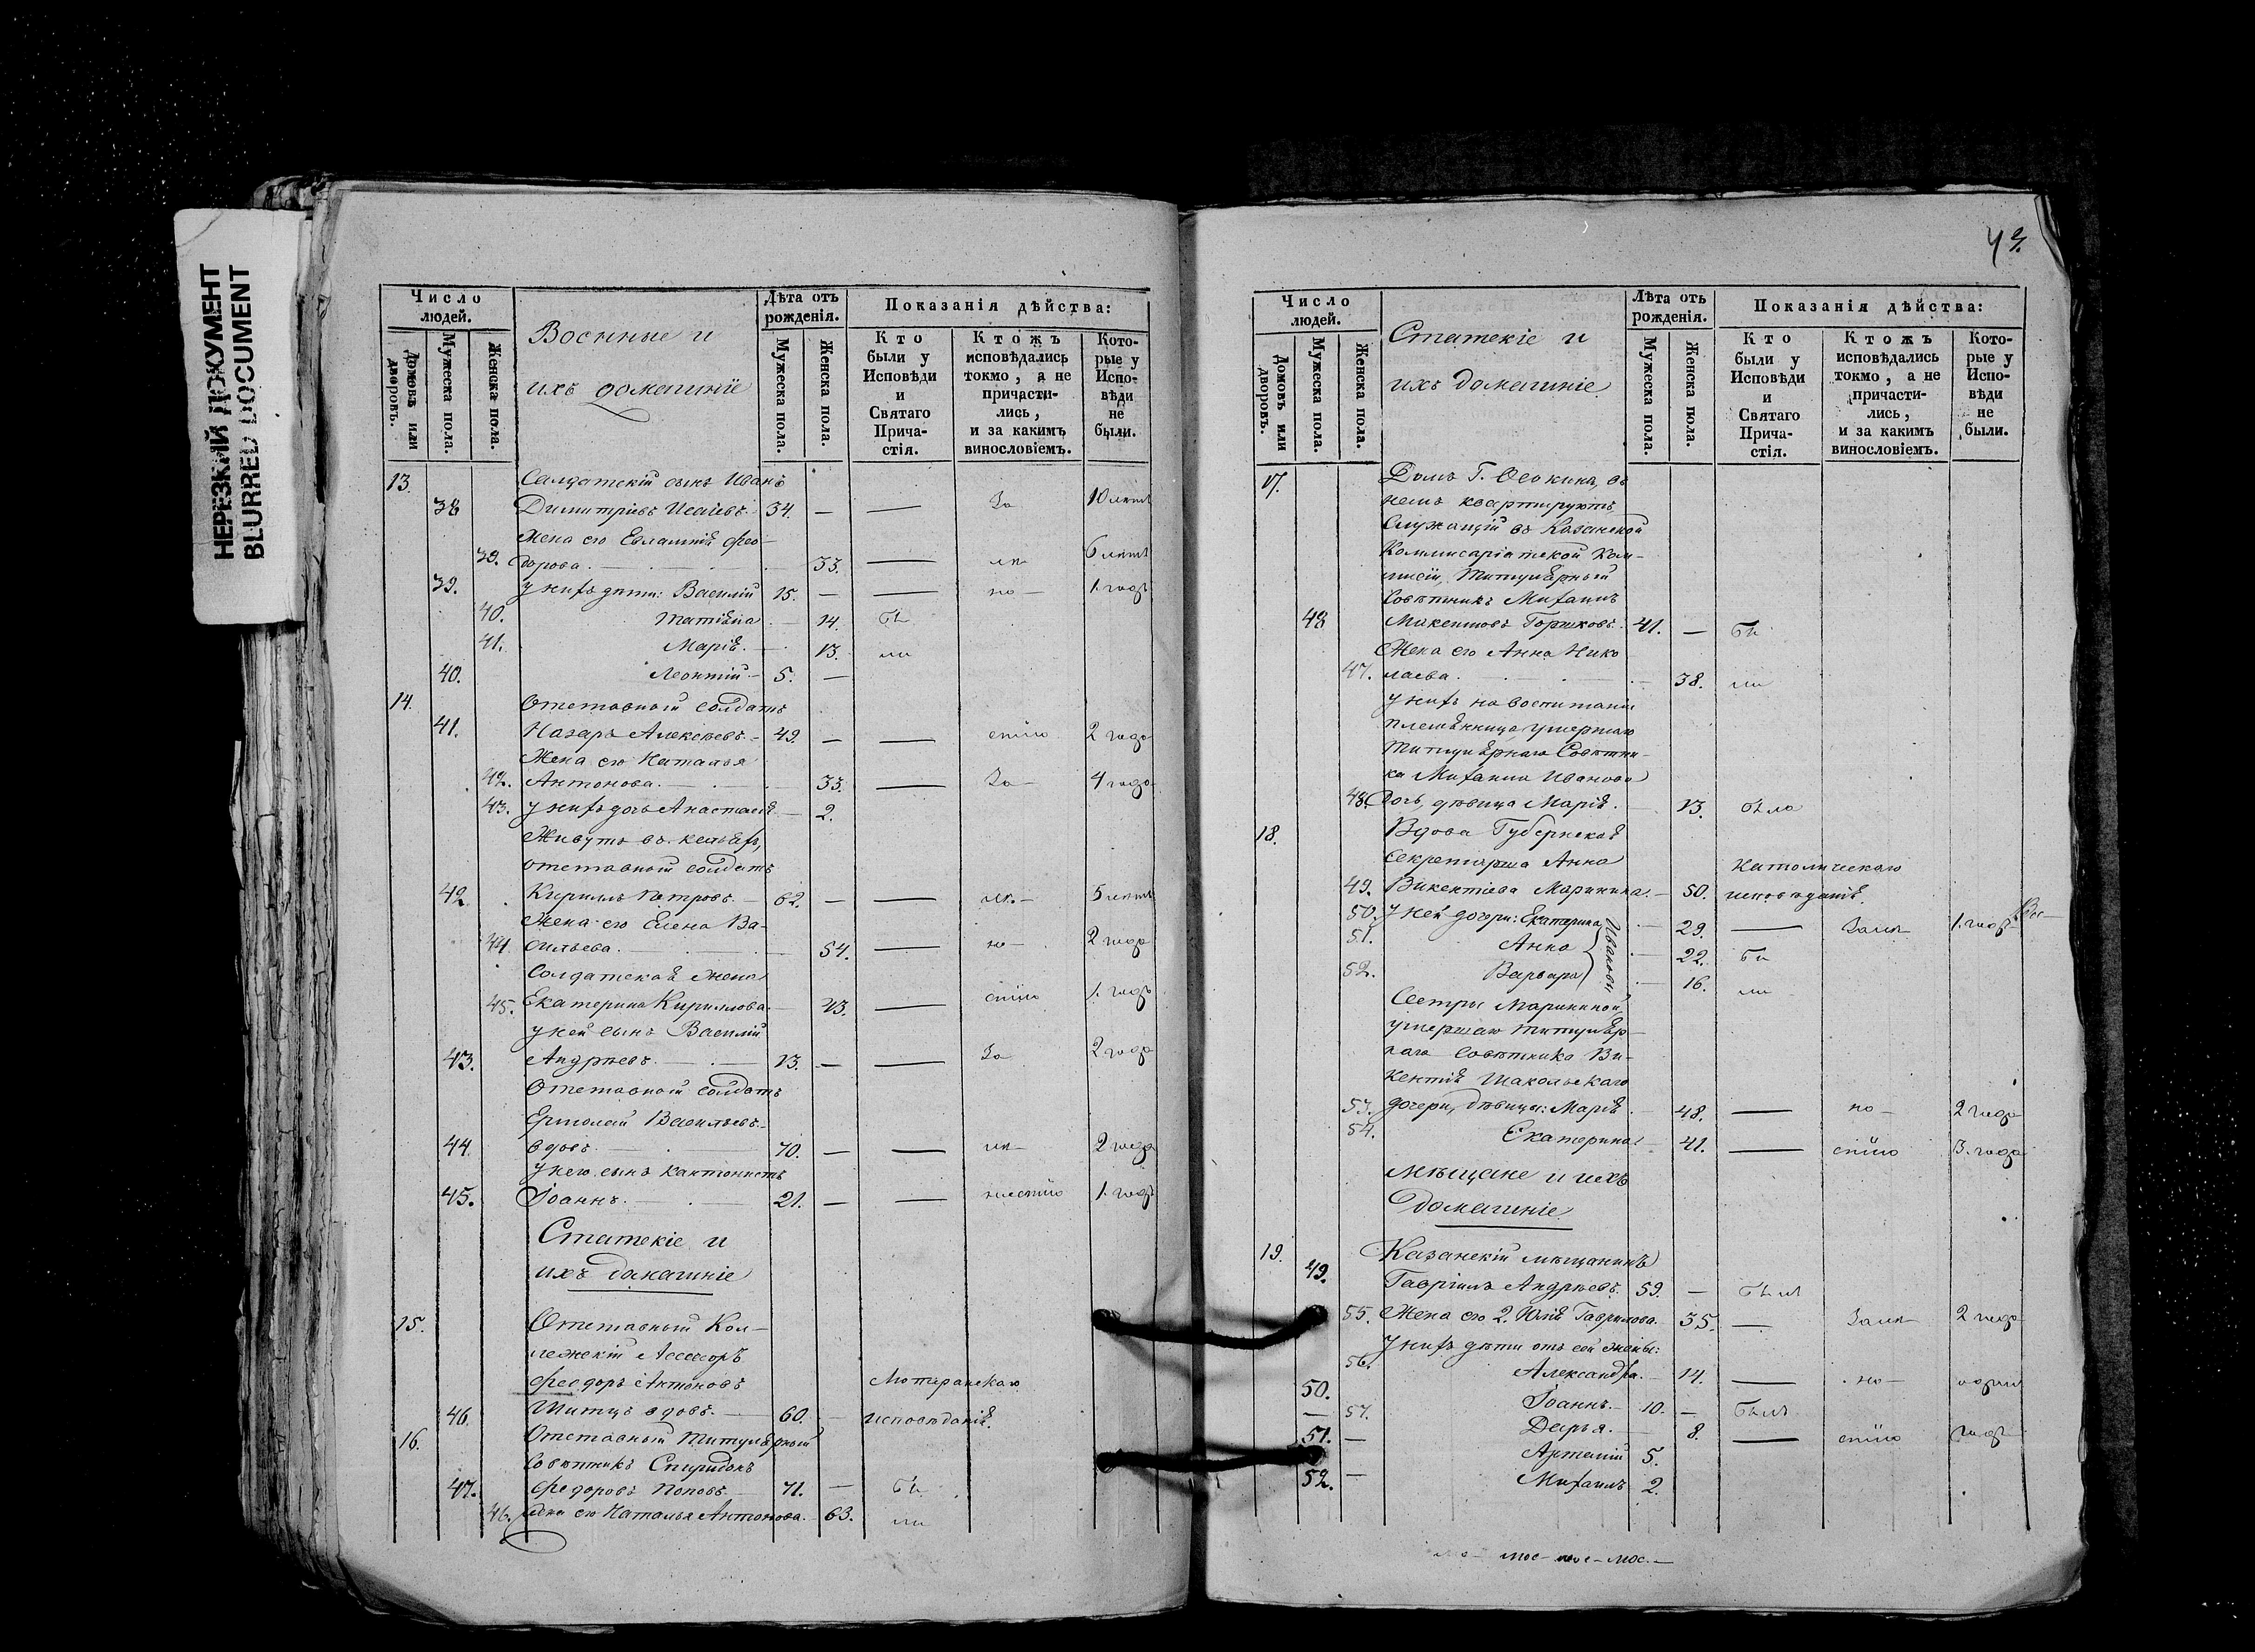 НЕРЕЗКИЙ ДОКУМЕНТ
BLURRED DOCUMENT
Число людей.
Домовъ или дворовъ.
Мужеска пола.
Женска пола.
Военные и
ихъ домашніе
Лѣта отъ рожденія.
Мужеска пола.
Женска пола.
Показанія дѣйства:
Кто были у Исповѣди и Святаго Прича-стія.
Ктожъ исповѣдались токмо, а не причасти-лись, и за какимъ винословіемъ.
Кото-рые у Испо-вѣди не были.
13. Салдатскій сынъ Иванъ
38 Димитріевъ Исаевъ. 34. — — За 10 лѣтъ
Жена его Евлампія Ѳео-
39. дорова. 33. — 6 лѣтъ
39. У нихъ дѣти: Василій 15. — — но — 1. годъ
40. Татіана — 14. Бы
41. Марія. 13. ли
40. Леонтій — 5. —
14. Отставной солдатъ
41. Назаръ Алексѣевъ. — 49. — — стію 2 года
Жена его Наталья
42. Антонова. 33. — За — 4 года
43. У нихъ дочь Анастасія — 2.
Живутъ въ кельяхъ,
отставной солдатъ
42. Кириллъ Петровъ. — 62. — — 5 лѣтъ
Жена его Елена Ва-
44. сильева. 54. — но — 2 года
Солдатская жена
45. Екатерина Кириллова. 43. — стію 1. годъ
У ней сынъ Василій
43. Андреевъ. 13. — — За 2 года
Отставной солдатъ
Ермолай Васильевъ.
44. вдовъ. 70. — — 2 года
У него сынъ кантонистъ
45. Іоаннъ. 21. — — 1. годъ
Статскіе и
ихъ домашніе
15. Отставный Кол-
лежскій Ассесоръ
Ѳеодоръ Антоновъ Лютеранскаго
46. вдовъ. 60. — исповѣданія.
16. Отставный Титулярный
Совѣтникъ Спиридонъ
47. Ѳедоровъ Поповъ. 71. — Бы
46. Жена его Наталья Антонова. 63. ли
43.
Число людей.
Домовъ или дворовъ.
Мужеска пола.
Женска пола.
Статскіе и
ихъ домашніе
Лѣта отъ рожденія.
Мужеска пола
Женска пола.
Показанія дѣйства:
Кто были у Исповѣди и Святаго Прича-стія.
Ктожъ исповѣдались токмо, а не причасти-лись, и за какимъ винословіемъ.
Кото-рые у Испо-вѣди не были.
17. Домъ Г. Осокина, въ
немъ квартируютъ
Служащій въ Казанской
Коммисаріатской Ком-
мисіи, Титулярный
Совѣтникъ Михаилъ
48 Горшковъ. 41. — Бы
Жена его Анна Нико
47. лаева. 38. ли
У нихъ на воспитаніи
племянница, умершаго
Титулярнаго Совѣтни-
ка Михаила Иванова
48. Дочь, дѣвица Марія. 13. была
18. Вдова Губернская
Секретарша Анна Католическаго
49. Викентіева Маринина. — 50. исповѣданія.
50. У ней дочери: Екатерина 29. — 1. годъ
51. Анна 22. Бы
52. Варвара 16. ли
Ивановы
Сестры Марининой,
умершаго Титуляр-
наго Совѣтника Ви-
кентія
53. дочери, дѣвицы: Марія — 48. — но — 2 года
54. Екатерина 41. — стію 3. года
Мѣщане и ихъ
домашніе
19. Казанскій мѣщанинъ
49. Гавріилъ Андреевъ. 59. — Былъ
55. Жена его 2. Юлія Гаврилова. 35. — 2 года
У нихъ дѣти отъ сей жены:
56. Александра. — 14. — но — одинъ
50. Іоаннъ. — 10. — Былъ
57. Дарья. 8. — стію годъ
51. — Артемій 5.
52. — Михаилъ 2.